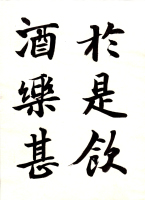 於是飲
酒樂甚